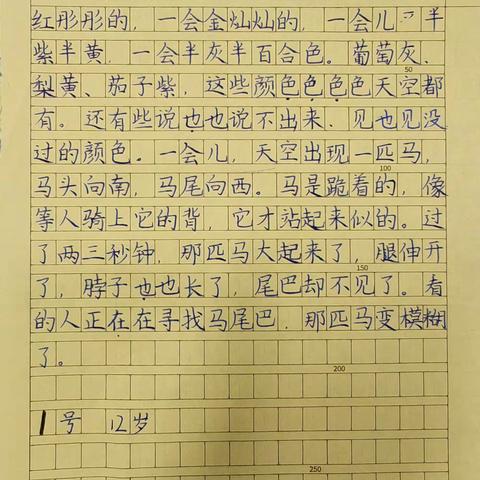 红彤彤的，一会金灿灿的，一会儿半
紫半黄，一会半灰半百合色。葡萄灰、
梨黄、茄子紫，这些颜色色色色天空都
50
有。还有些说也也说不出来、见也见没
过的颜色。一会儿，天空出现一匹马，
100
马头向南，马尾向西。马是跪着的，像
等人骑上它的背，它才站起来似的。过
了两三秒钟，那匹马大起来了，腿伸开
150
了，脖子也也长了，尾巴却不见了。看
的人正在在寻找马尾巴，那匹马变模糊
了。
200
1号 12岁
250